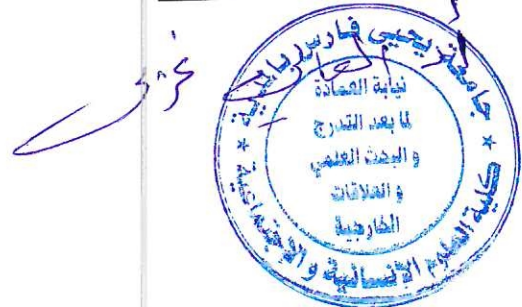 جامعة يحيى فارس بالمدية
نيابة العمادة
لما بعد التدرج
و البحث العلمي
و العلاقات
الخارجية
كلية العلوم الإنسانية و الاجتماعية